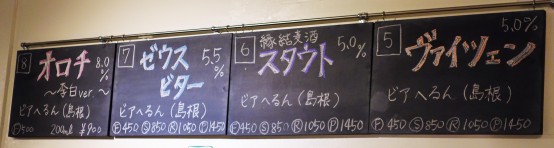 8
オロチ 8.0%
〜李白ver.〜
ビアへるん(島根)
Ⓕ500 200ml ¥900
7
ゼウスビター 5.5%
ビアへるん(島根)
Ⓕ450 Ⓢ850 Ⓡ1050 Ⓟ1450
6
縁結麦酒
スタウト 5.0%
ビアへるん(島根)
Ⓕ450 Ⓢ850 Ⓡ1050 Ⓟ1450
5
5.0%
ヴァイツェン
ビアへるん(島根)
Ⓕ450 Ⓢ850 Ⓡ1050 Ⓟ1450